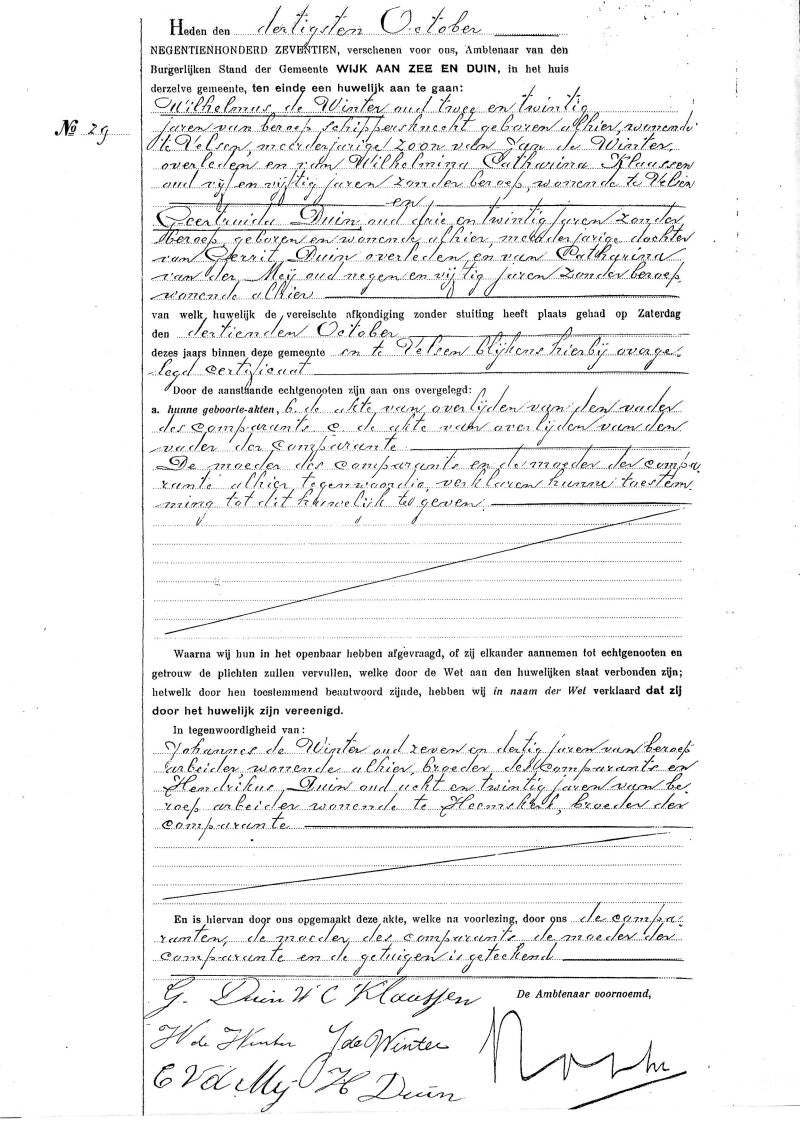 Heden den dertigsten October
NEGENTIENHONDERD ZEVENTIEN, verschenen voor ons, Ambtenaar van den
Burgerlijken Stand der Gemeente WIJK AAN ZEE EN DUIN, in het huis
derzelve gemeente, ten einde een huwelijk aan te gaan:
Wilhelmus de Winter oud twee en twintig
No 29
jaren van beroep schippersknecht geboren alhier, wonende
te Velsen, meerderjarige zoon van Jan de Winter,
overleden, en van Wilhelmina Catharina Klaassen
oud vijf en vijftig jaren zonder beroep, wonende te Velsen
en
Geertruida Duin, oud drie en twintig jaren zonder
beroep, geboren en wonende alhier, meerderjarige dochter
van Gerrit Duin overleden en van Catharina
van der Meij oud negen en vijftig jaren zonder beroep
wonende alhier
van welk huwelijk de vereischte afkondiging zonder stuiting heeft plaats gehad op Zaterdag
den dertienden October
dezes jaars binnen deze gemeente en te Velsen blijkens hierbij overge-
legd certificaat
Door de aanstaande echtgenooten zijn aan ons overgelegd:
a. hunne geboorte-akten, b. de akte van overlijden van den vader
des comparants c. de akte van overlijden van den
vader der comparante.
De moeder des comparants en de moeder der compa-
rante alhier tegenwoordig, verklaren hunne toestem-
ming tot dit huwelijk te geven.
Waarna wij hun in het openbaar hebben afgevraagd, of zij elkander aannemen tot echtgenooten en
getrouw de plichten zullen vervullen, welke door de Wet aan den huwelijken staat verbonden zijn;
hetwelk door hen toestemmend beantwoord zijnde, hebben wij in naam der Wet verklaard dat zij
door het huwelijk zijn vereenigd.
In tegenwoordigheid van:
Johannes de Winter oud zeven en dertig jaren van beroep
arbeider, wonende alhier, broeder des comparants en
Hendrikus Duin oud acht en twintig jaren van be-
roep arbeider wonende te Heemskerk, broeder der
comparante
En is hiervan door ons opgemaakt deze akte, welke na voorlezing, door ons de compa-
ranten, de moeder des comparants de moeder der
comparante en de getuigen is geteekend
G. Duin W C Klaassen
De Ambtenaar voornoemd,
W de Winter J de Winter
C V d Meij H Duin